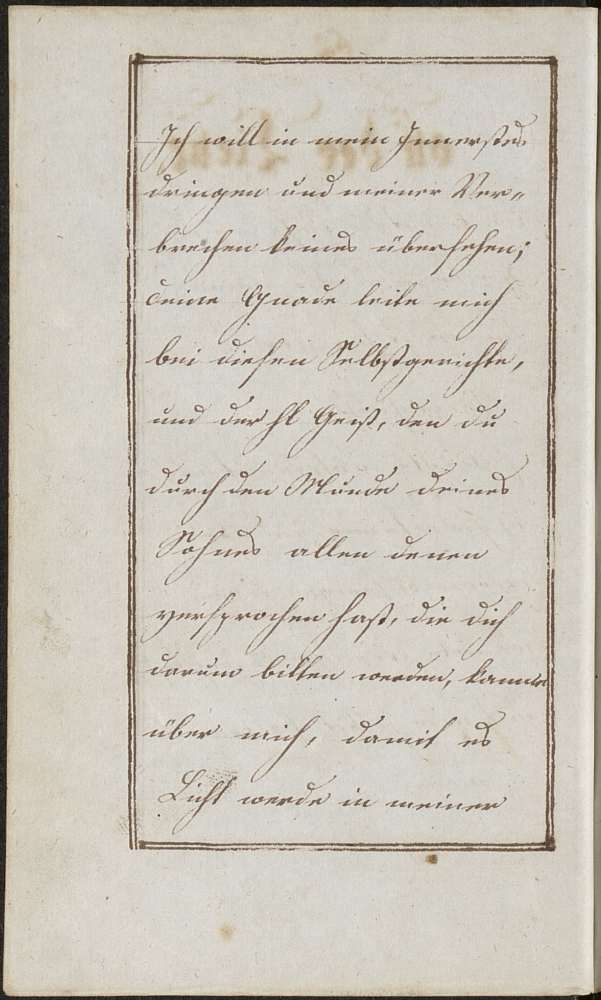 Ich will in mein Innerstes
dringen und meiner Ver„
brechen keines übersehen;
deine Gnade leite mich
bei diesen Selbstgerichte,
und der hl Geist, den du
durch den Munde deines
Sohnes allen denen
versprochen hast, die dich
darum bitten werden, komme
über mich, damit es
Licht werde in meiner